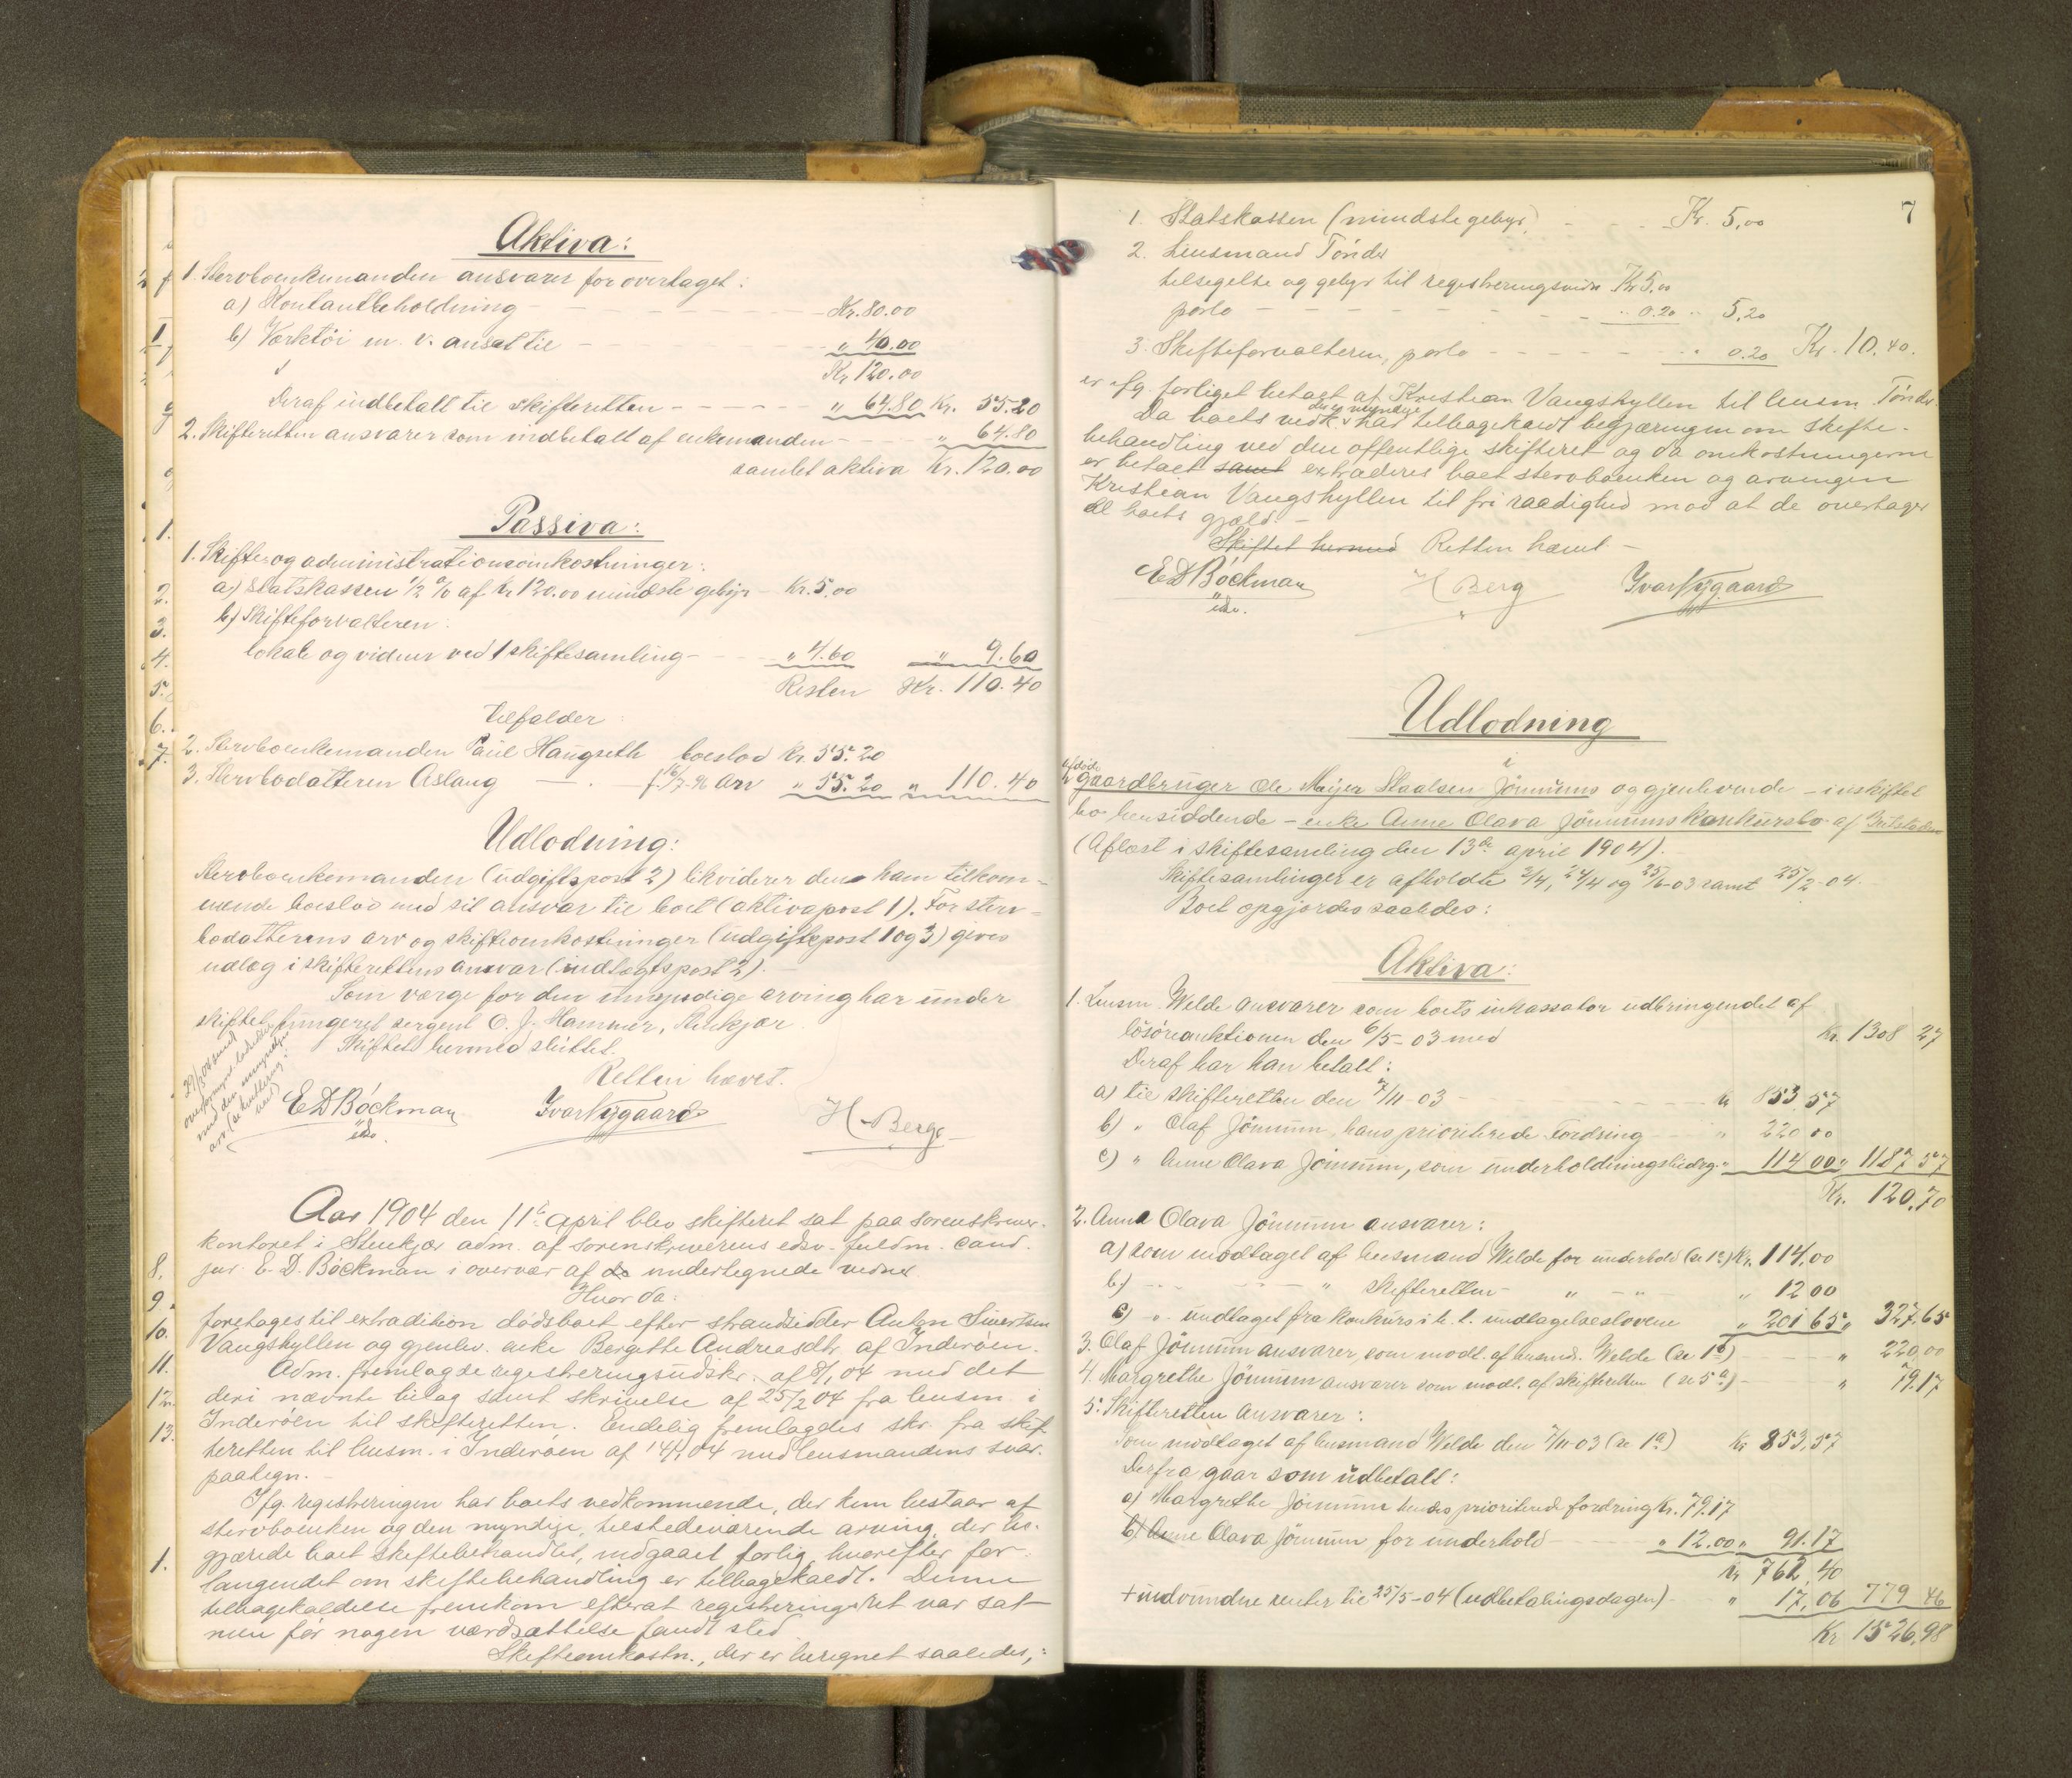 Aktiva:
1. Stervboenkemanden ansvarer for overtaget:
a) Kontantbeholdning - Kr. 80.00
b) Værktøi m. v. ansat til - " 40.00
Kr. 120.00
Deraf indbetalt til skifteretten - " 64.80 Kr. 55.20
2. Skifteretten ansvarer som indbetalt af enkemanden - " 64.80
samlet aktiva Kr. 120.00
Passiva:
1. Skifte og administrationsomkostninger:
a) Statskassen 1/2 % af Kr 120.00 mindste gebyr - Kr. 5.00
b) Skifteforvalteren:
lokale og vidner ved 1 skiftesamling - " 4.60 " 9.60
Resten Kr. 110.40
tilfalder:
2. Stervboenkemanden Paul Haugseth boeslod Kr. 55.20
3. Stervbodatteren Aslaug — f. 16/7-96 arv " 55.20 " 110.40
Udlodning:
Stervboenkemanden (udgiftspost 2) likviderer den ham tilkom-
mende boeslod med sit ansvar til boet (aktivapost 1). For sterv-
bodatterens arv og skifteomkostninger (udgiftspost 1 og 3) gives
udlæg i skifterettens ansvar (indtægtspost 2).
Som værge for den umyndige arving har under
skiftet fungeret sergent O. J. Hammer, Stenkjær
Skiftet hermed sluttet.
Retten hævet.
E D Böckman
edsv.
Ivar Nygaard
H. Berg
Aar 1904 den 11te april blev skifteret sat paa sorenskriver-
kontoret i Stenkjær adm. af sorenskriverens edsv. fuldm. cand.
jur. E. D. Böckman i overvær af do undertegnede vidner.
Hvor da:
foretages til extradition dødsboet efter strandsidder Anton Sivertsen
Vangshyllen og gjenlev. enke Bergitte Andreasdtr. af Inderøen.
Adm. fremlagde registreringsudskr. af 8/1 04 med det
deri nævnte bilag samt skrivelse af 25/2 04 fra lensm. i
Inderøen til skifteretten. Endelig fremlagdes skr. fra skif-
teretten til lensm. i Inderøen af 14/1 04 med lensmandens svar.
paategn. -
Ifg. registreringen har boets vedkommende, der kun bestaar af
stervboenken og den myndige, tilstedeværende arving, der be-
gjærede boet skiftebehandlet, indgaaet forlig, hvorefter for-
langendet om skiftebehandling er tilbagekaldt. Denne
tilbagekaldelse fremkom efterat registreringsret var sat
men før nogen værdsættelse fandt sted
Skifteomkostn., der er beregnet saaledes,:
7
1. Statskassen (mindste gebyr) - Kr. 5,00
2. Lensmand Tønder
tilsegelse og gebyr til registreringsvidn. Kr 5.00
porto - " 0.20 " 5,20
3. Skifteforvalteren, porto - " 0.20 Kr. 10.40.
er ifg. forliget betagt af Kristian Vangshyllen til lensm. Tønder
Da boets vedk. der er myndige har tilbagekaldt begjæringen om skifte-
behandling ved den offentlige skifteret og da omkostningerne
er betalt samt extraderes boet stervboenken og arvingen
Kristian Vangshyllen til fri raadighed mod at de overtager
al boets gjæld. -
Skiftet hermed Retten hævet -
E D Böckman
edsv.
H Berg
Ivar Nygaard
Udlodning
i
afdøde
gaardbruger Ole Meyer Staalsen Jönnums og gjenlevende - i uskiftet
bo hensiddende - enke Anne Olava Jönnums konkursbo af
(Aflæst i skiftesamling den 13de april 1904).
Skiftesamlinger er afholdte 2/4, 24/4 og 25/6-03 samt 25/2-04.
Boet opgjordes saaledes:
Aktiva:
1. Lensm. Welde ansvarer som boets inkassator udbringendet af
løsøreauktionen den 6/5-03 med Kr. 1308 27
Deraf har han betalt:
a) til skifteretten den 7/11-03 - Kr 853,57
b) " Olaf Jönnum, hans prioriterede fordring " 220 00
c) " Anne Olava Jönnum, som underholdningsbidrag. " 114 00 " 1187 57
Kr. 120,70
2. Anna Olava Jönnum ansvarer:
a) som modtaget af lensmand Welde for underhold (se 1c) Kr. 114,00
b) - - " skifteretten - " - " 12 00
c) " undtaget fra konkurs i h. t. undtagelsesloven " 201 65 " 327,65
3. Olaf Jönnum ansvarer, som modt. af lensmd. Welde (se 1b) - " 220,00
4. Margrethe Jönnum ansvarer som modt. af skifteretten (se 5a) - " 79.17
5. Skifteretten ansvarer:
som modtaget af lensmand Welde den 7/11-03 (se 1a) Kr 853,57
Derfra gaar som udbetalt:
a) Margrethe Jönnum hendes prioriterede fordring Kr. 79.17
b) Anne Olava Jönnum for underhold - " 12.00 " 91.17
Kr 762,40
+ indvundne renter til 25/5-04 (udbetalingsdagen) - " 17,06 779 46
Kr 1526,98